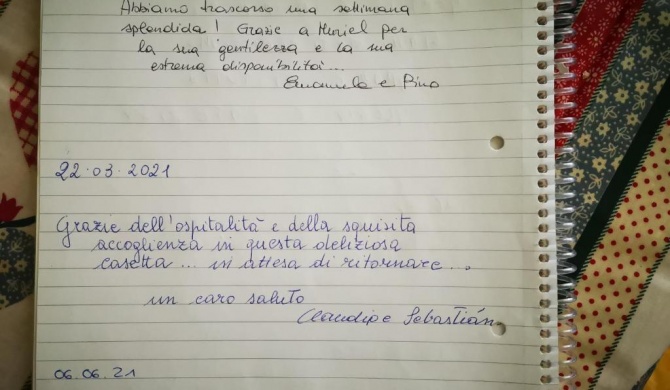 Abbiamo trascorso una settimana
splendida! Grazie a Muriel per
la sua gentilezza e la sua
estrema disponibilità...
Emanuela e Pino
22.03.2021
Grazie dell'ospitalità e della squisita
accoglienza in questa deliziosa
casetta... in attesa di ritornare...
un caro saluto
Claudio e Sebastián
06.06.21